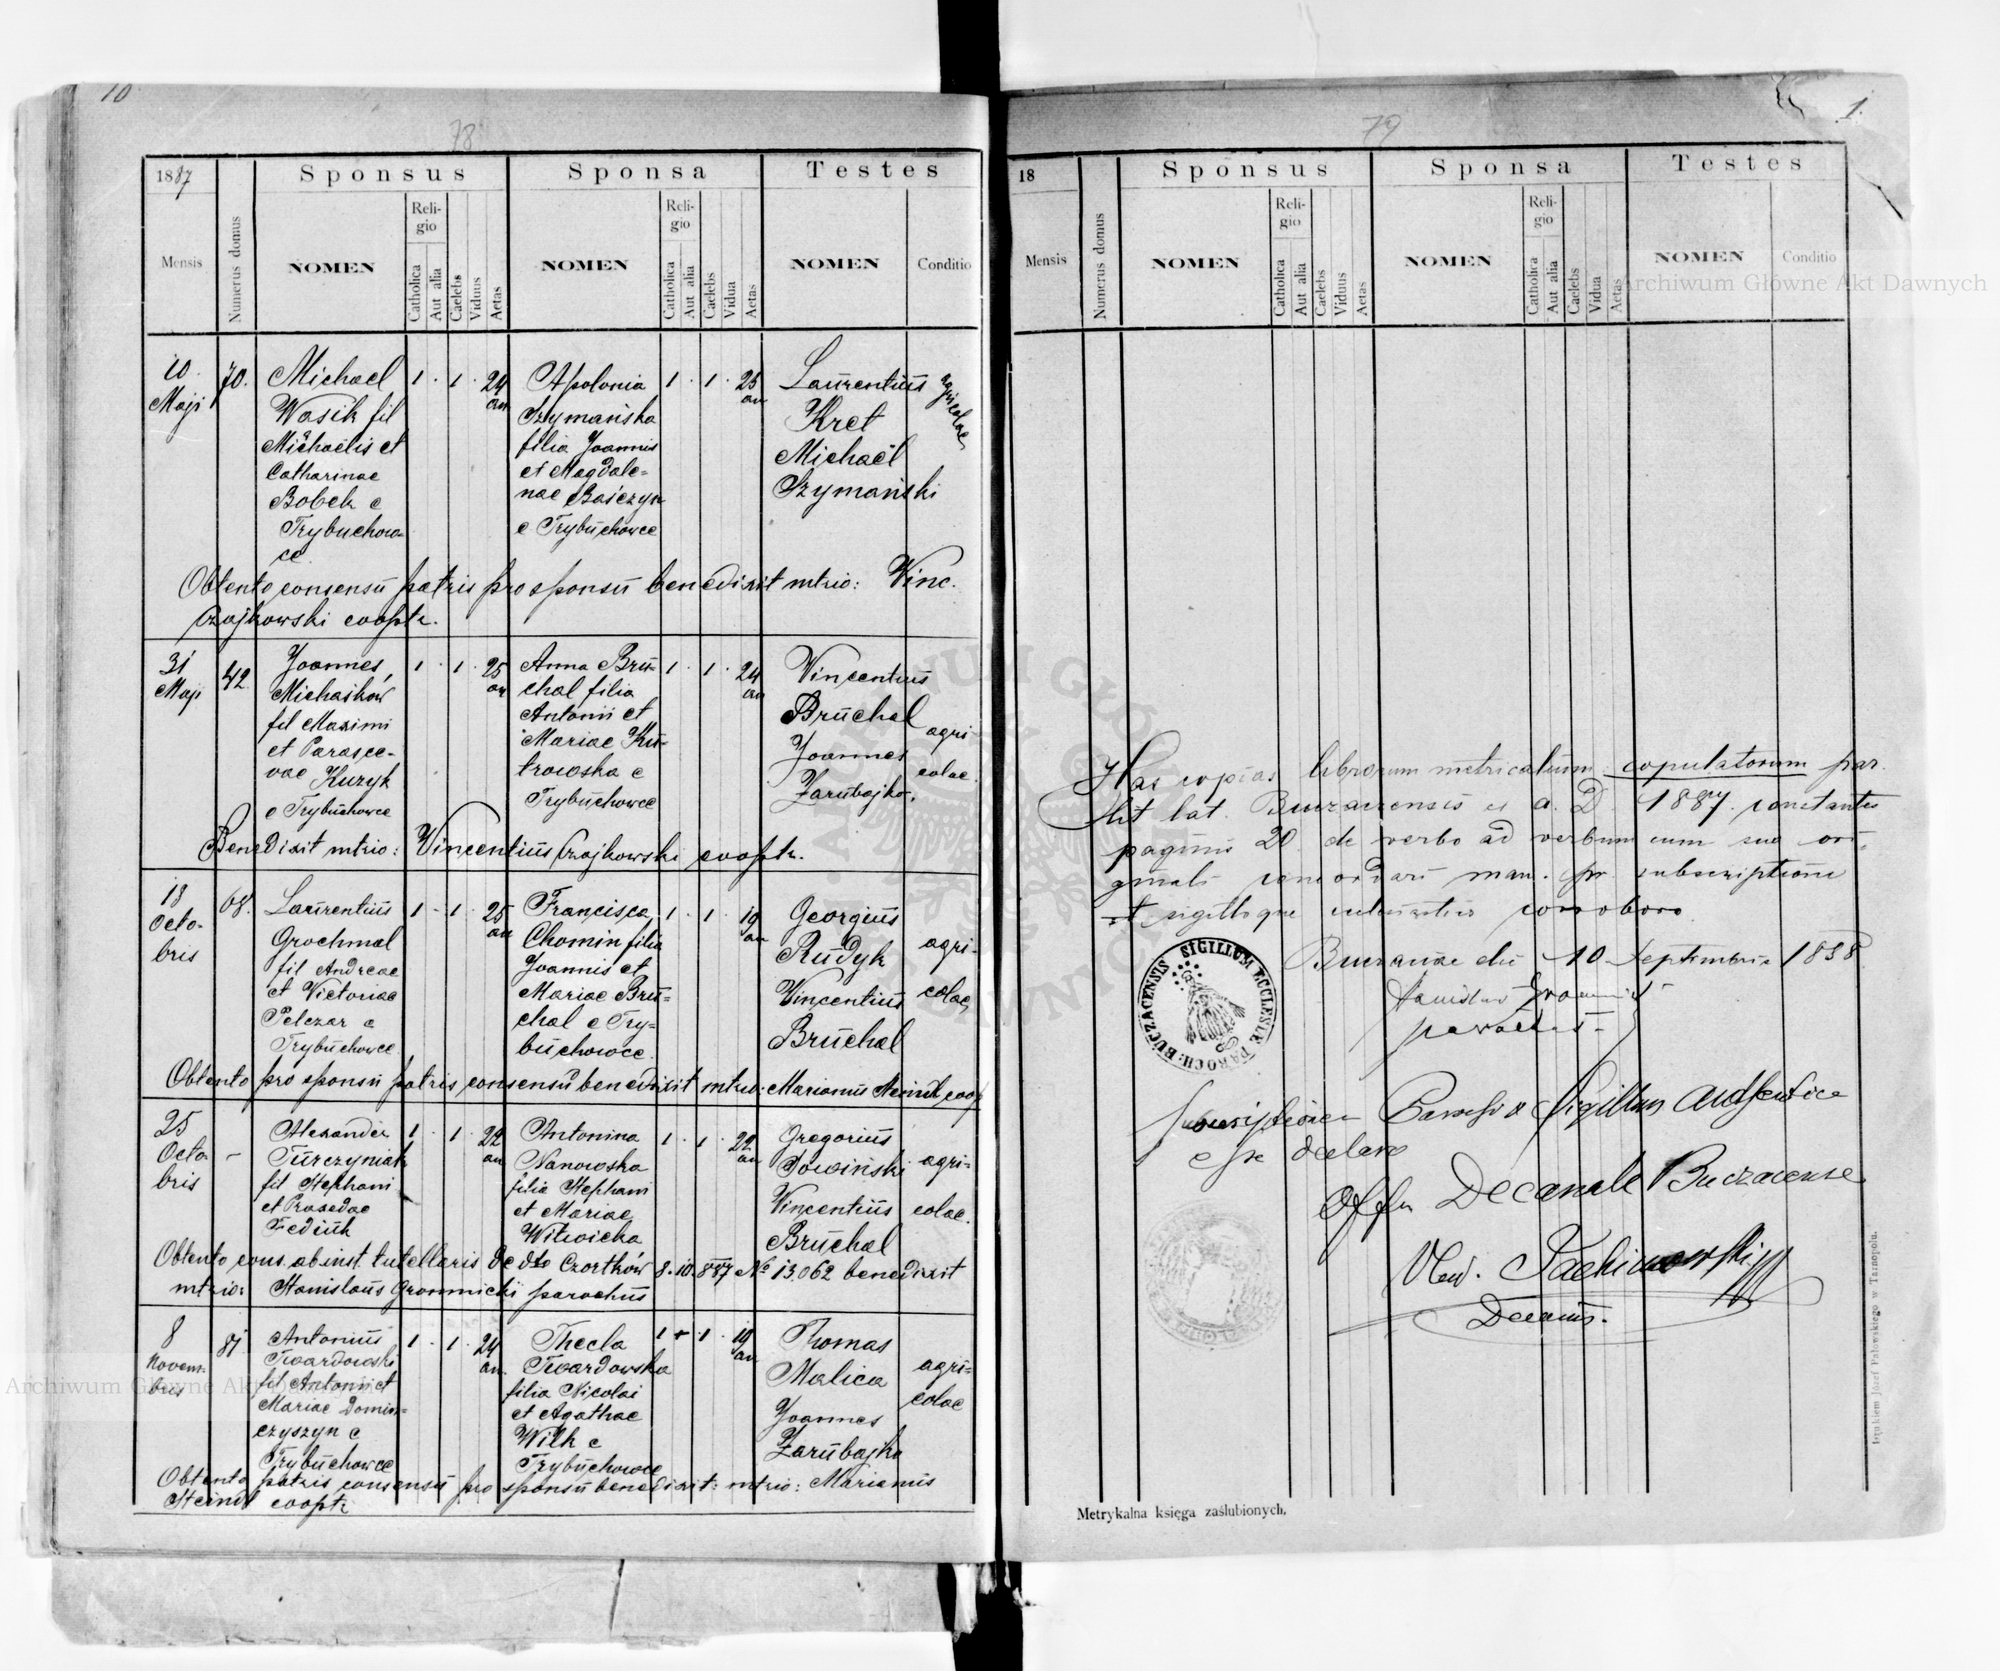 10
78
1887
Sponsus
Sponsa
Testes
Mensis
Numerus domus
NOMEN
Religio
Catholica
Aut alia
Caelebs
Viduus
Aetas
NOMEN
Religio
Catholica
Aut alia
Caelebs
Vidua
Aetas
NOMEN
Conditio
10
Maji
70.
Michael
Wasik fil
Michaelis et
Catharinae
Bobek e
Trybuchow-
ce
1 . 1 . 24
an
Apolonia
Szymańska
filia Joannis
et Magdale=
nae Baiczyn
e Trybuchowce
1 . 1 . 23
an
Laurentius
Kret
Michaël
Szymański
agricolae
Obtento consensu patris pro sponsu benedixit mtrio: Vinc.
Czajkowski cooptr.
31
Maji
42
Joannes
Michaśków
fil Maximi
et Parasce-
vae Kuzyk
e Trybuchowce
1 . 1 . 25
an
Anna Bru-
chal filia
Antonii et
Mariae Ku-
trowska e
Trybuchowce
1 . 1 . 24
an
Vincentius
Bruchal
Joannes
Zarubajko.
agri-
colae.
Benedixit mtrio: Vincentius Czajkowski cooptr.
18
Octo-
bris
68.
Laurentius
Grochmal
fil Andreae
et Victoriae
Pelczar e
Trybuchowce
1 . 1 . 25
an
Francisca
Chomin filia
Joannis et
Mariae Bru=
chal e Try=
buchowce
1 . 1 . 19
an
Georgius
Rudyk
Vincentius
Bruchal
agri-
colae
Obtento pro sponsu patris consensu benedixit mtrio: Marianus Steindl coop
25
Octo-
bris
–
Alexander
Turczyniak
fil Stephani
et Praxedae
Fediuk
1 . 1 . 22
an
Antonina
Nanowska
filia Stephani
et Mariae
Witwicka
1 . 1 . 22
an
Gregorius
Sowiński
Vincentius
Bruchal
agri-
colae.
Obtento cons. ab inst. tutellaris de dto Czortków 8.10.887 No 13.062 benedixit
mtrio: Stanislaus Gromnicki parochus
8
Novem-
bris
81
Antonius
Twardowski
fil Antonii et
Mariae Domin=
czyszyn e
Trybuchowce
1 . 1 . 24
an.
Thecla
Twardowska
filia Nicolai
et Agathae
Wilk e
Trybuchowce
1 + 1 . 19
an
Thomas
Malica
Joannes
Zarubajko
agri=
colae
Obtento patris consensu pro sponsu benedixit: mtrio: Marianus
Steindl cooptr
1.
79
18
Sponsus
Sponsa
Testes
Mensis
Numerus domus
NOMEN
Religio
Catholica
Aut alia
Caelebs
Viduus
Aetas
NOMEN
Religio
Catholica
Aut alia
Caelebs
Vidua
Aetas
NOMEN
Conditio
Has copias librorum metricalium copulatorum par.
rit lat. Buczacensis ex a. D 1887. constantes
paginis 20 de verbo ad verbum cum suo ori-
ginali concordari man. pr. subscriptione
et sigilloque corroboro
Buczaciae die 10 Septembris 1888
Stanislaus Gromnicki
parochus
SIGILLUM ECCLESIAE PAROCH: BUCZACENSIS
Subscriptionem Parochi & Sigillum authentice
esse declaro
Offm Decanale Buczacense
Decanus.
Metrykalna księga zaślubionych.
Drukiem Józef Pawowskiego w Tarnopolu.
Archiwum Główne Akt Dawnych
Archiwum Główne Akt Dawnych